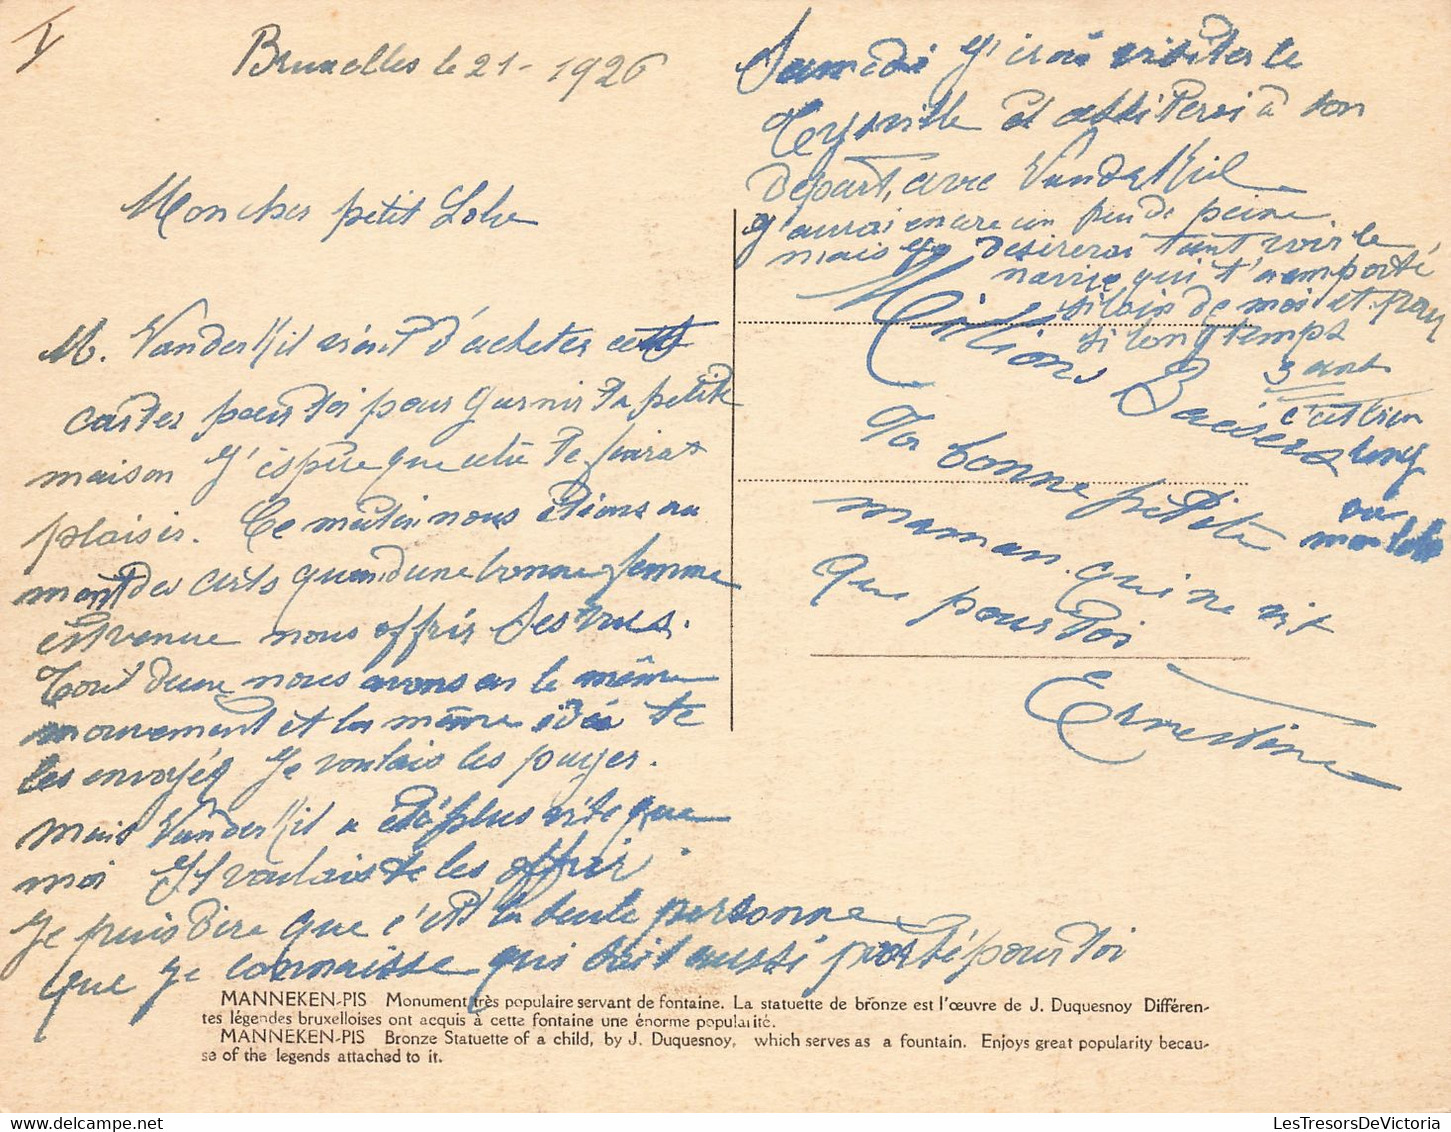 Bruxelles le 21 - 1926
Mon cher petit Lolo
M. VanderKil vient d'acheter cette
cartes pour toi pour garnir ta petite
maison J'espère que cela te faira
plaisir. Ce matin nous étions au
mont des arts quand une bonne femme
est venue nous offrir ses vues.
Tout deux nous avons eu le même
mouvement et la même idée te
les envoyés Je voulais les payer.
mais VanderKil a été plus vite que
moi Il voulais te les offrir
Je puis dire que c'est la seule personne
que je connaisse qui soit aussi porté pour toi
Samedi j'irai visiter le
Leysville et assisterai à son
départ, avec VanderKil
J'aurai encore un peu de peine
mais je desirerai tant voir le
navire qui t'a emporté
si loin de moi et pour
si longtemps
3 ans
c'est bien
long
mon lolo
Millions Baisers
Ta bonne petite
maman qui ne vit
que pour toi
Ernestine
MANNEKEN-PIS Monument très populaire servant de fontaine. La statuette de bronze est l'œuvre de J. Duquesnoy Différen-
tes légendes bruxelloises ont acquis à cette fontaine une énorme popularité.
MANNEKEN-PIS Bronze Statuette of a child, by J. Duquesnoy, which serves as a fountain. Enjoys great popularity becau-
se of the legends attached to it.
LesTresorsDeVictoria